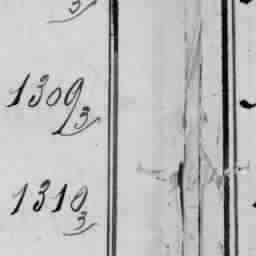 3
1309 3
1310 3